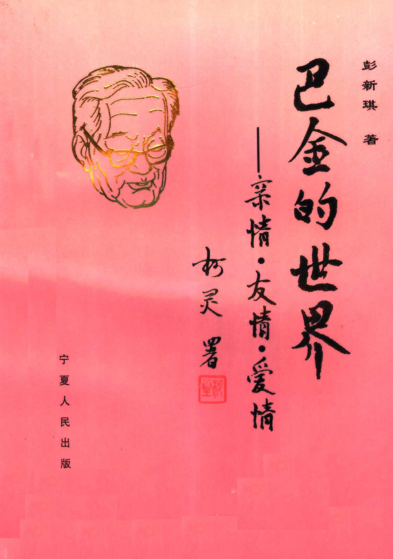 彭新琪 著
巴金的世界
——亲情·友情·爱情
柯灵 署
宁夏人民出版